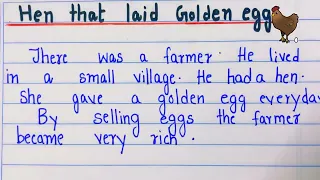 Hen that laid Golden egg
There was a farmer. He lived
in a small village. He had a hen.
She gave a golden egg everyday
By selling eggs the farmer
became very rich.